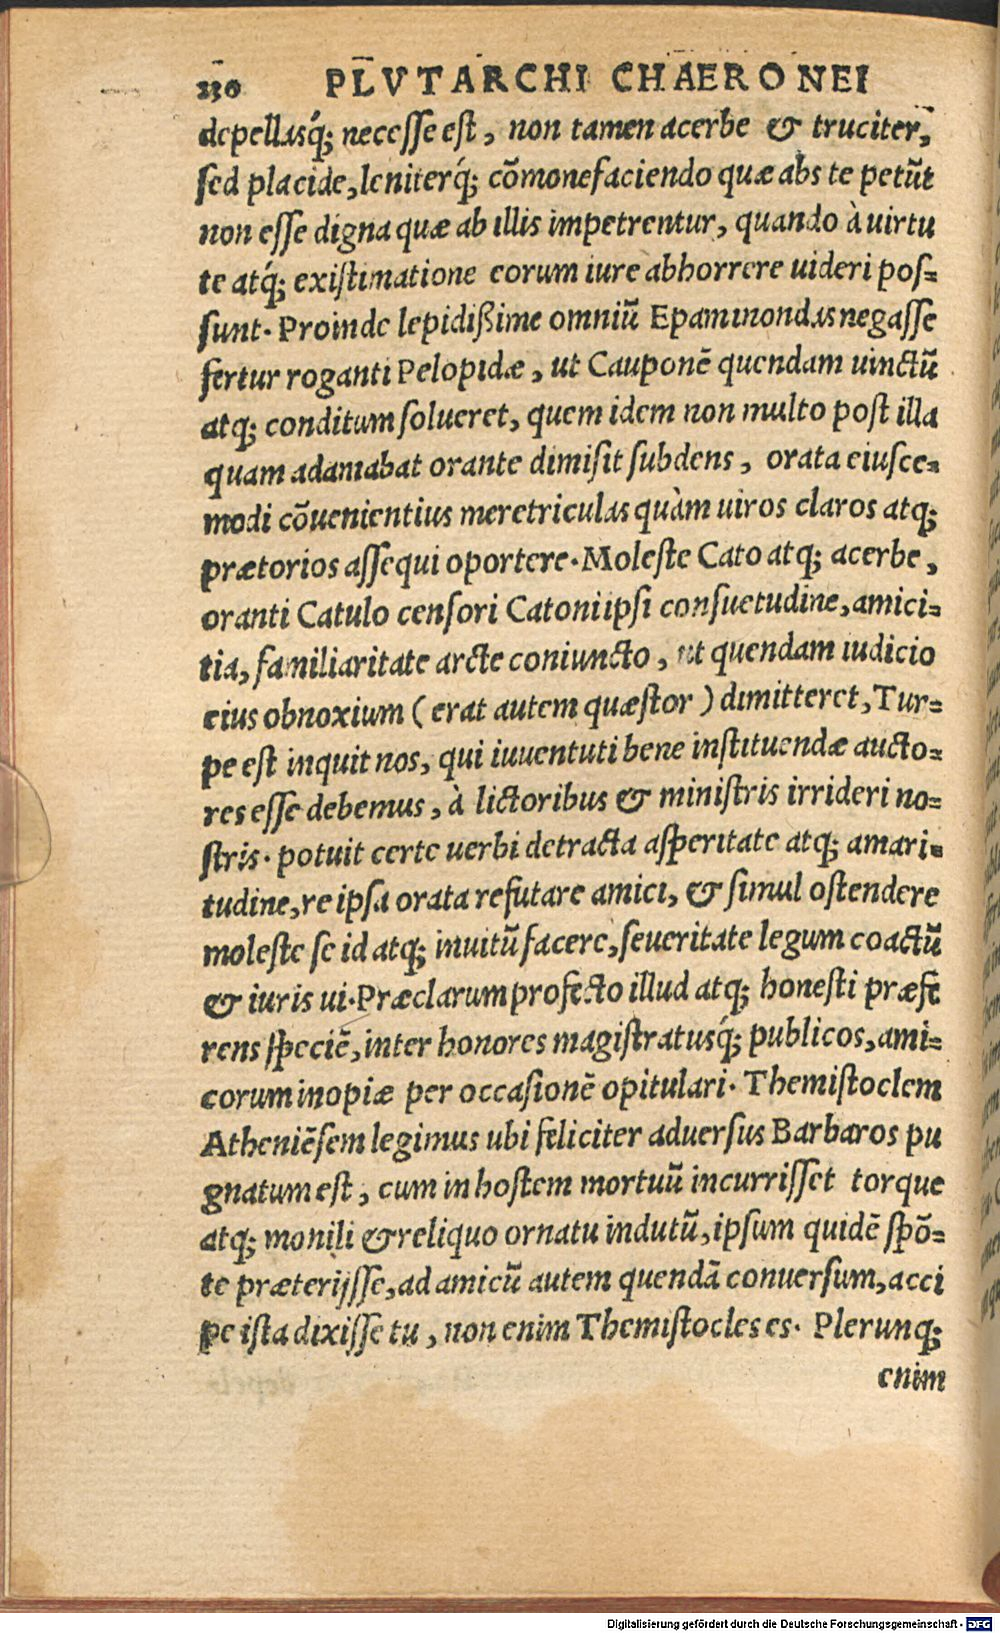 230 PLVTARCHI CHAERONEI
depellasq́; necesse est, non tamen acerbe & truciter,
sed placide, leniterq́; cõmonefaciendo quæ abs te petũt
non esse digna quæ ab illis impetrentur, quando à uirtu
te atq́; existimatione eorum iure abhorrere uideri pos-
sunt. Proinde lepidißime omniũ Epaminondas negasse
fertur roganti Pelopidæ, ut Cauponẽ quendam uinctũ
atq; conditum solueret, quem idem non multo post illa
quam adamabat orante dimisit subdens, orata eiusce-
modi cõuenientius meretriculas quàm uiros claros atq;
prætorios assequi oportere. Moleste Cato atq; acerbe,
oranti Catulo censori Catoni ipsi consuetudine, amici-
tia, familiaritate arcte coniuncto, ut quendam iudicio
eius obnoxium (erat autem quæstor) dimitteret, Tur-
pe est inquit nos, qui iuuentuti bene instituendæ aucto-
res esse debemus, à lictoribus & ministris irrideri no-
stris. potuit certe uerbi detracta asperitate atq; amari-
tudine, re ipsa orata refutare amici, & simul ostendere
moleste se id atq; inuitũ facere, seueritate legum coactũ
& iuris ui. Præclarum profecto illud atq; honesti præfe
rens speciẽ, inter honores magistratusq́; publicos, ami-
corum inopiæ per occasionẽ opitulari. Themistoclem
Atheniẽsem legimus ubi feliciter aduersus Barbaros pu
gnatum est, cum in hostem mortuũ incurrisset torque
atq; monili & reliquo ornatu indutũ, ipsum quidẽ spõ-
te præterijsse, ad amicũ autem quendã conuersum, acci
pe ista dixisse tu, non enim Themistocles es. Plerunq;
enim
Digitalisierung gefördert durch die Deutsche Forschungsgemeinschaft - DFG